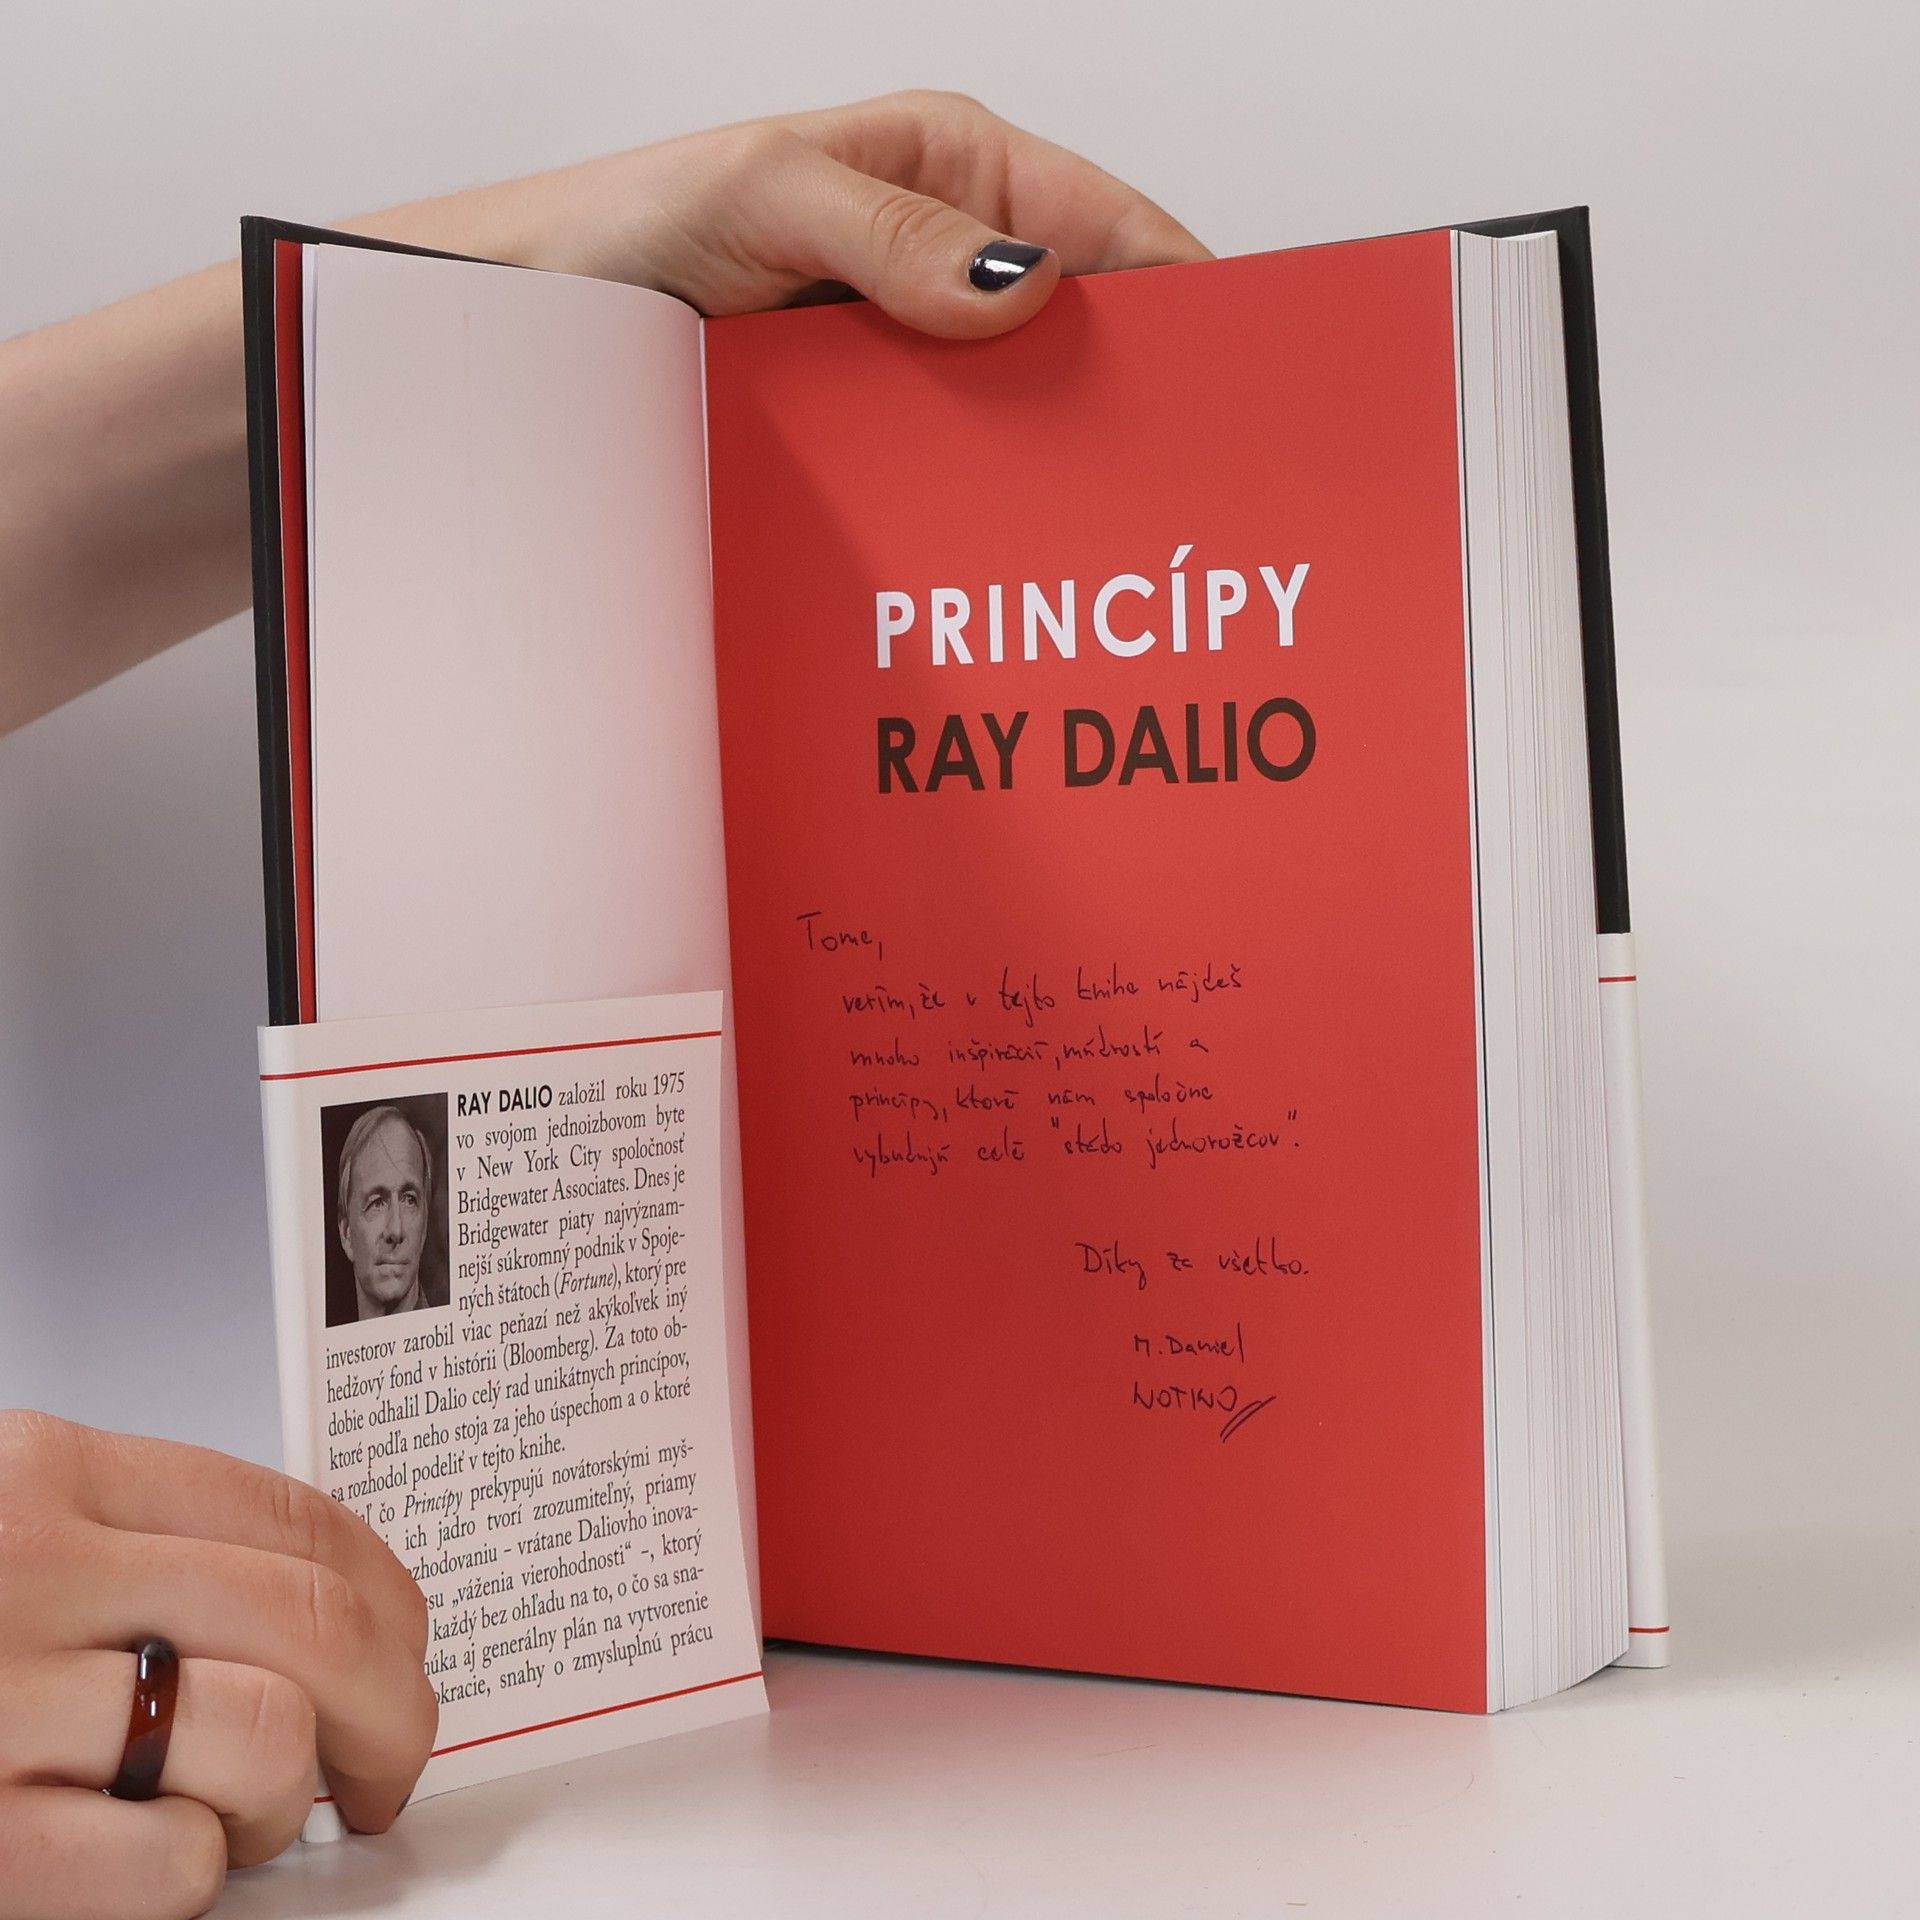 PRINCÍPY
RAY DALIO
Tome,
verím, že v tejto knihe nájdeš
mnoho inšpirácií, múdrostí a
princípy, ktoré nám spoločne
vybudujú celé "stádo jednorožcov".
Díky za všetko.
M. Daniel
NOTINO
RAY DALIO založil roku 1975
vo svojom jednoizbovom byte
v New York City spoločnosť
Bridgewater Associates. Dnes je
Bridgewater piaty najvýznam-
nejší súkromný podnik v Spoje-
ných štátoch (Fortune), ktorý pre
investorov zarobil viac peňazí než akýkoľvek iný
hedžový fond v histórii (Bloomberg). Za toto ob-
dobie odhalil Dalio celý rad unikátnych princípov,
ktoré podľa neho stoja za jeho úspechom a o ktoré
sa rozhodol podeliť v tejto knihe.
čo Princípy prekypujú novátorskými myš-
ich jadro tvorí zrozumiteľný, priamy
ozhodovaniu – vrátane Daliovho inova-
esu „váženia vierohodnosti“ –, ktorý
každý bez ohľadu na to, o čo sa sna-
núka aj generálny plán na vytvorenie
okracie, snahy o zmysluplnú prácu